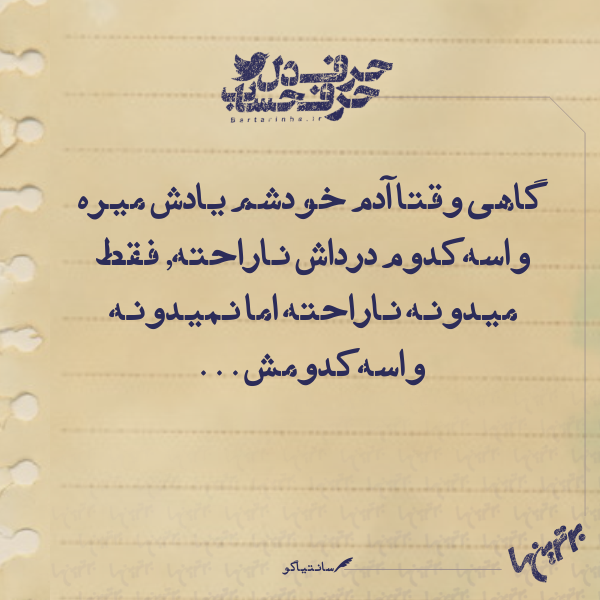 حرف دل
حرف حساب
Bartarinha.ir
گاهی وقتا آدم خودشم یادش میره
واسه کدوم درداش ناراحته, فقط
میدونه ناراحته اما نمیدونه
واسه کدومش...
سانتیاگو
برترین ها